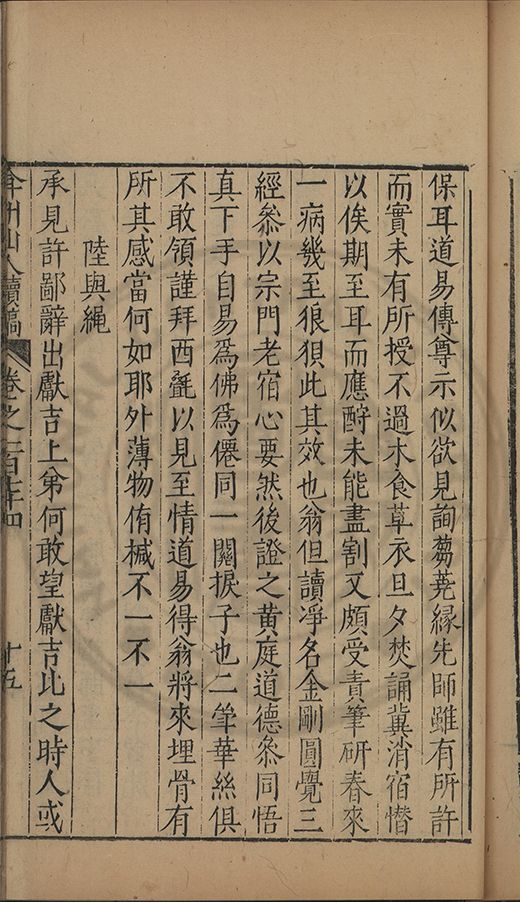 保耳道易傳尊示似欲見詢蒭蕘緣先師雖有所許
而實未有所授不過木食草衣旦夕焚誦冀消宿愆
以俟期至耳而應酧未能盡割又頗受責筆硏春來
一病幾至狼狽此其效也翁但讀淨名金剛圓覺三
經叅以宗門老宿心要然後證之黃庭道德叅同悟
真下手自易爲佛爲僊同一關捩子也二筆華絲俱
不敢領謹拜西毾以見至情道易得翁將來埋骨有
所其感當何如耶外薄物侑椷不一不一
陸與繩
承見許鄙辭出獻吉上弟何敢望獻吉比之時人或
弇州山人續稿 卷之一百七十四 十五